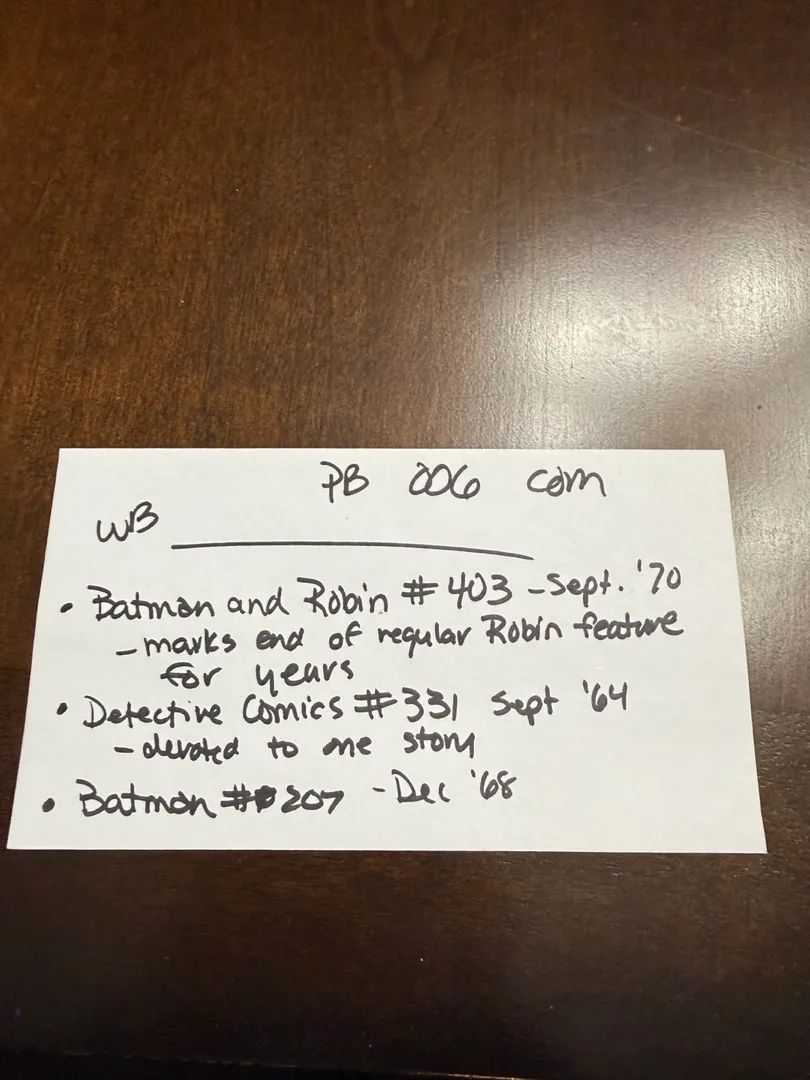 PB 006 com
WB
• Batman and Robin # 403 - Sept. '70
- marks end of regular Robin feature
for years
• Detective Comics # 331 Sept '64
- devoted to one story
• Batman # 207 - Dec '68